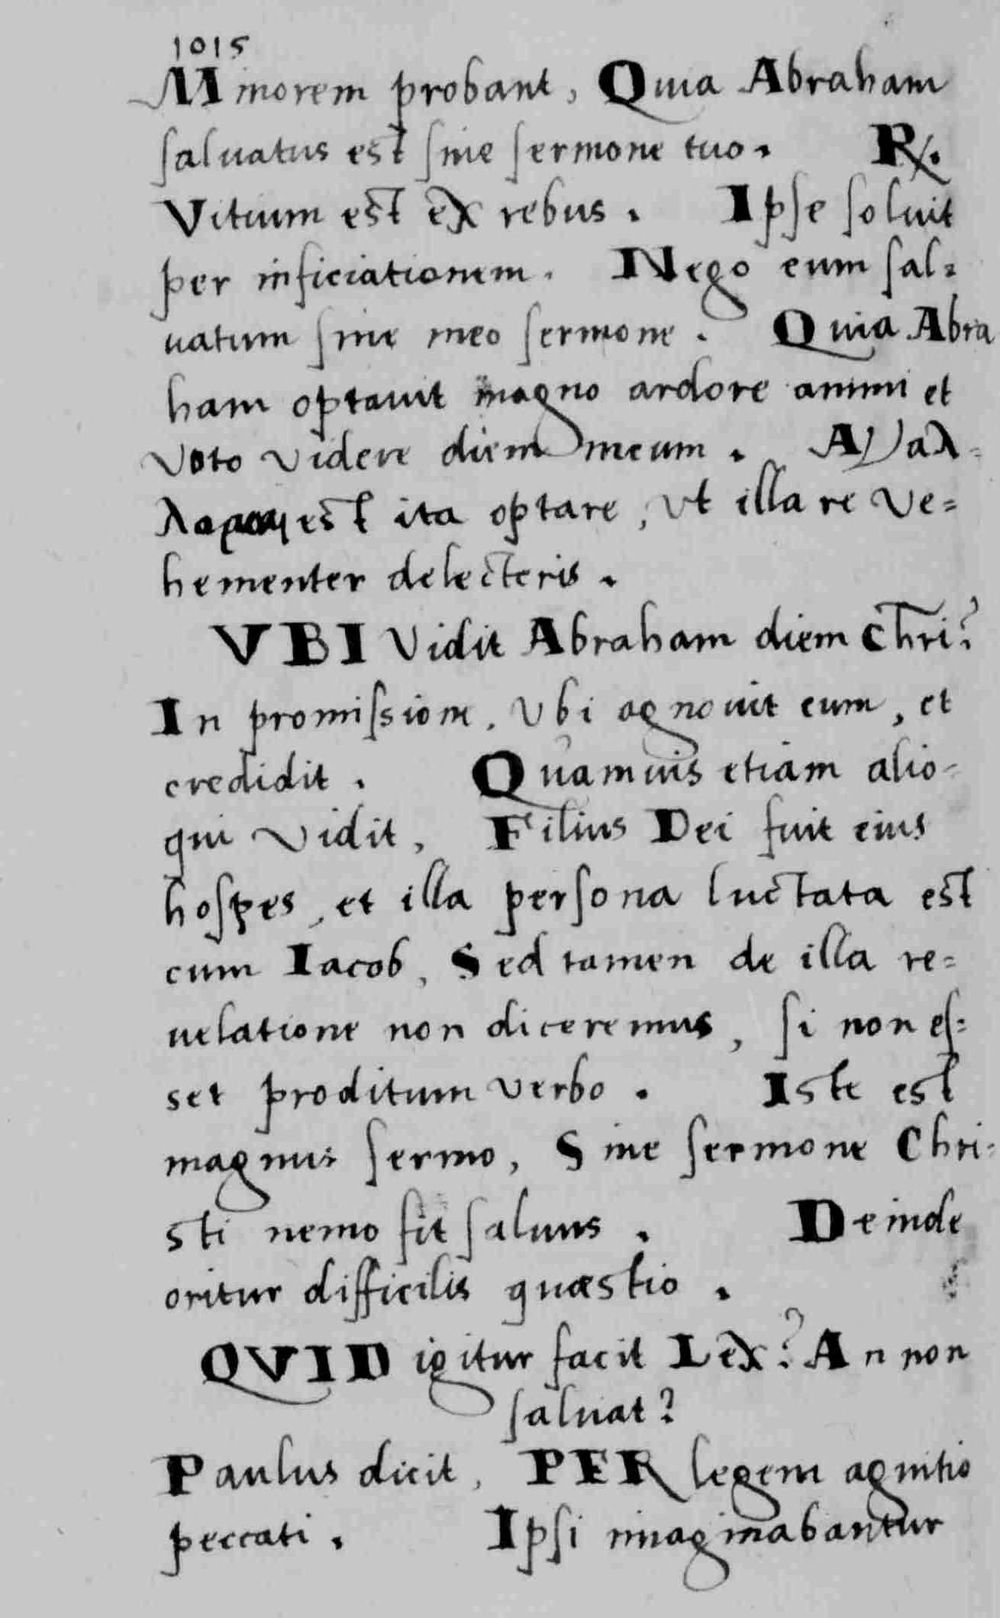 1015
Minorem probant, Quia Abraham
saluatus est sine sermone tuo. R/.
Vitium est ex rebus. Ipse soluit
per inficiationem. Nego eum sal=
uatum sine meo sermone. Quia Abra
ham optauit magno ardore animi et
voto videre diem meum. Ἀγαλ-
λαμαι est ita optare, vt illa re ve=
hementer delecteris.
VBI vidit Abraham diem Chri?
In promissione, vbi agnouit eum, et
credidit. Quamuis etiam alio-
qui vidit, Filius Dei fuit eius
hospes, et illa persona luctata est
cum Iacob, Sed tamen de illa re=
uelatione non diceremus, si non es=
set proditum verbo. Iste est
magnus sermo, Sine sermone Chri-
sti nemo fit saluus. Deinde
oritur difficilis quæstio.
QVID igitur facit Lex? An non
saluat?
Paulus dicit, PER legem agnitio
peccati. Ipsi imaginabantur